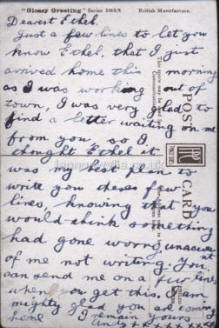 "Glossy Greeting" Series
British Manufacture.
Dearest Ethel.
Just a few lines to let you
know Ethel, that I just
arrived home this morning
as I was working out of
town, I was very glad to
find a letter waiting on me
from you, so I
thought Ethel it
was my best plan to
write you these few
lines, knowing that you
would think something
had gone worng,
of me not writing. You
can send me on a few lines
when you get this, I am
mighty glad you are coming
home I remain yours
POST
CARD